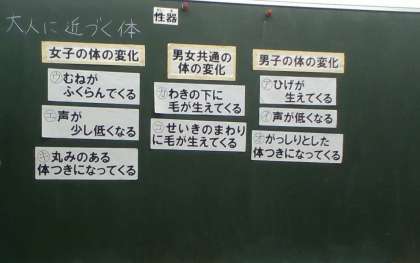 大人に近づく体
性器
女子の体の変化
㋒むねが
ふくらんでくる
㋓声が
少し低くなる
㋖丸みのある
体つきになってくる
男女共通の
体の変化
㋕わきの下に
毛が生えてくる
せいきのまわり
に毛が生えてくる
男子の体の変化
㋐ひげが
生えてくる
㋑声が低くなる
㋔がっしりとした
体つきになってくる